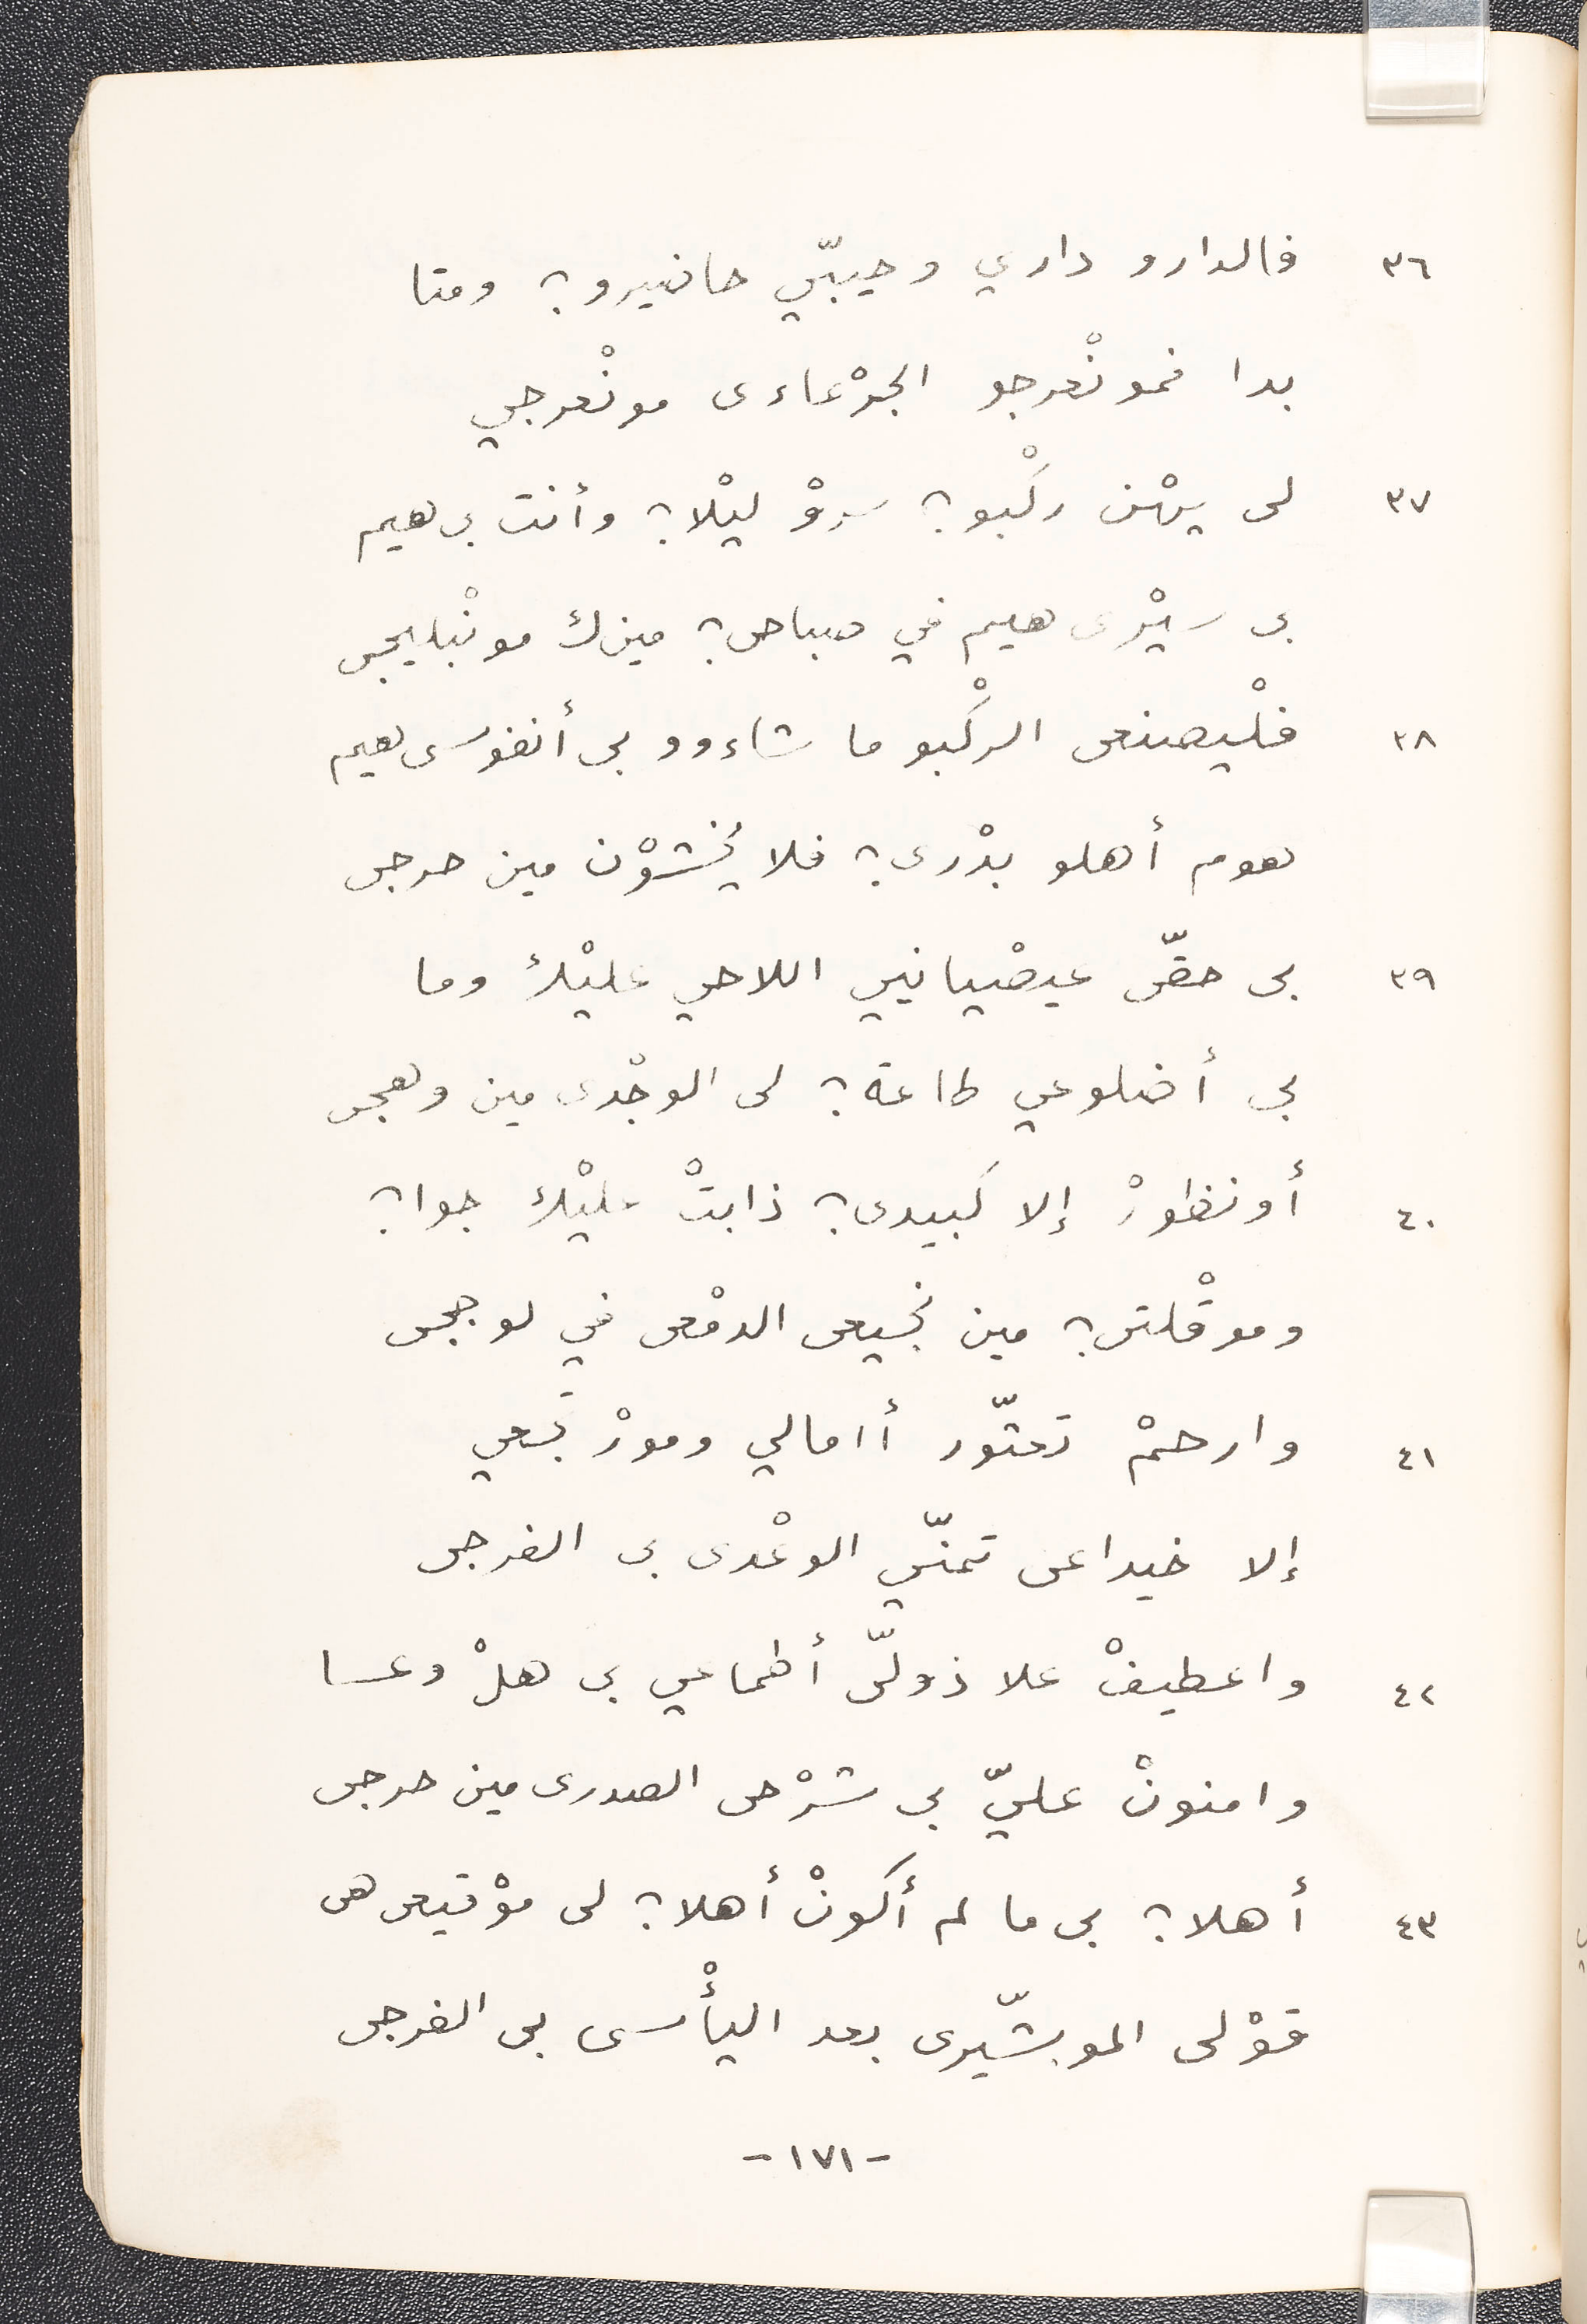 ٣٦ فالدارو داري وحيبّي حاضيرو؟ ومتا
بدا فمونْعرجو الجرْعاءى مونْعرجي
٣٧ لى يهْن ركْبو؟ سروْ ليْلا؟ وأنت بى هيم
بى سيْرى هيم في صباحى؟ مينك مونْبليجى
٣٨ فلْيصنعى الركْبو ما شاءوو بى أنفوسى هيم
هوم أهلو بدْرى؟ فلا يخشوْن مين حرجى
٣٩ بى حقّى عيصْيانيي اللاحي عليْك وما
بي أضلوعي طاعة؟ لى الوجْدى مين وهجى
٤٠ أونظورْ إلا كبيدى؟ ذابتْ عليْك جوا؟
وموقْلتى؟ مين نجيعى الدمْعى في لوججى
٤١ وارحمْ تعتّور أامالي ومورْتجعي
إلا خيداعى تمنّي الوعْدى بى الفرجى
٤٢ واعطيفْ علا ذولّى أطماعي بى هلْ وعسا
وامنونْ عليّ بى شرْحى الصدرى مين حرجى
٤٣ أهلا؟ بى ما لم أكونْ أهلا؟ لى موْقيعى هى
قوْلى الموبشّيرى بعد اليأْسى بى الفرجى
-١٧١-